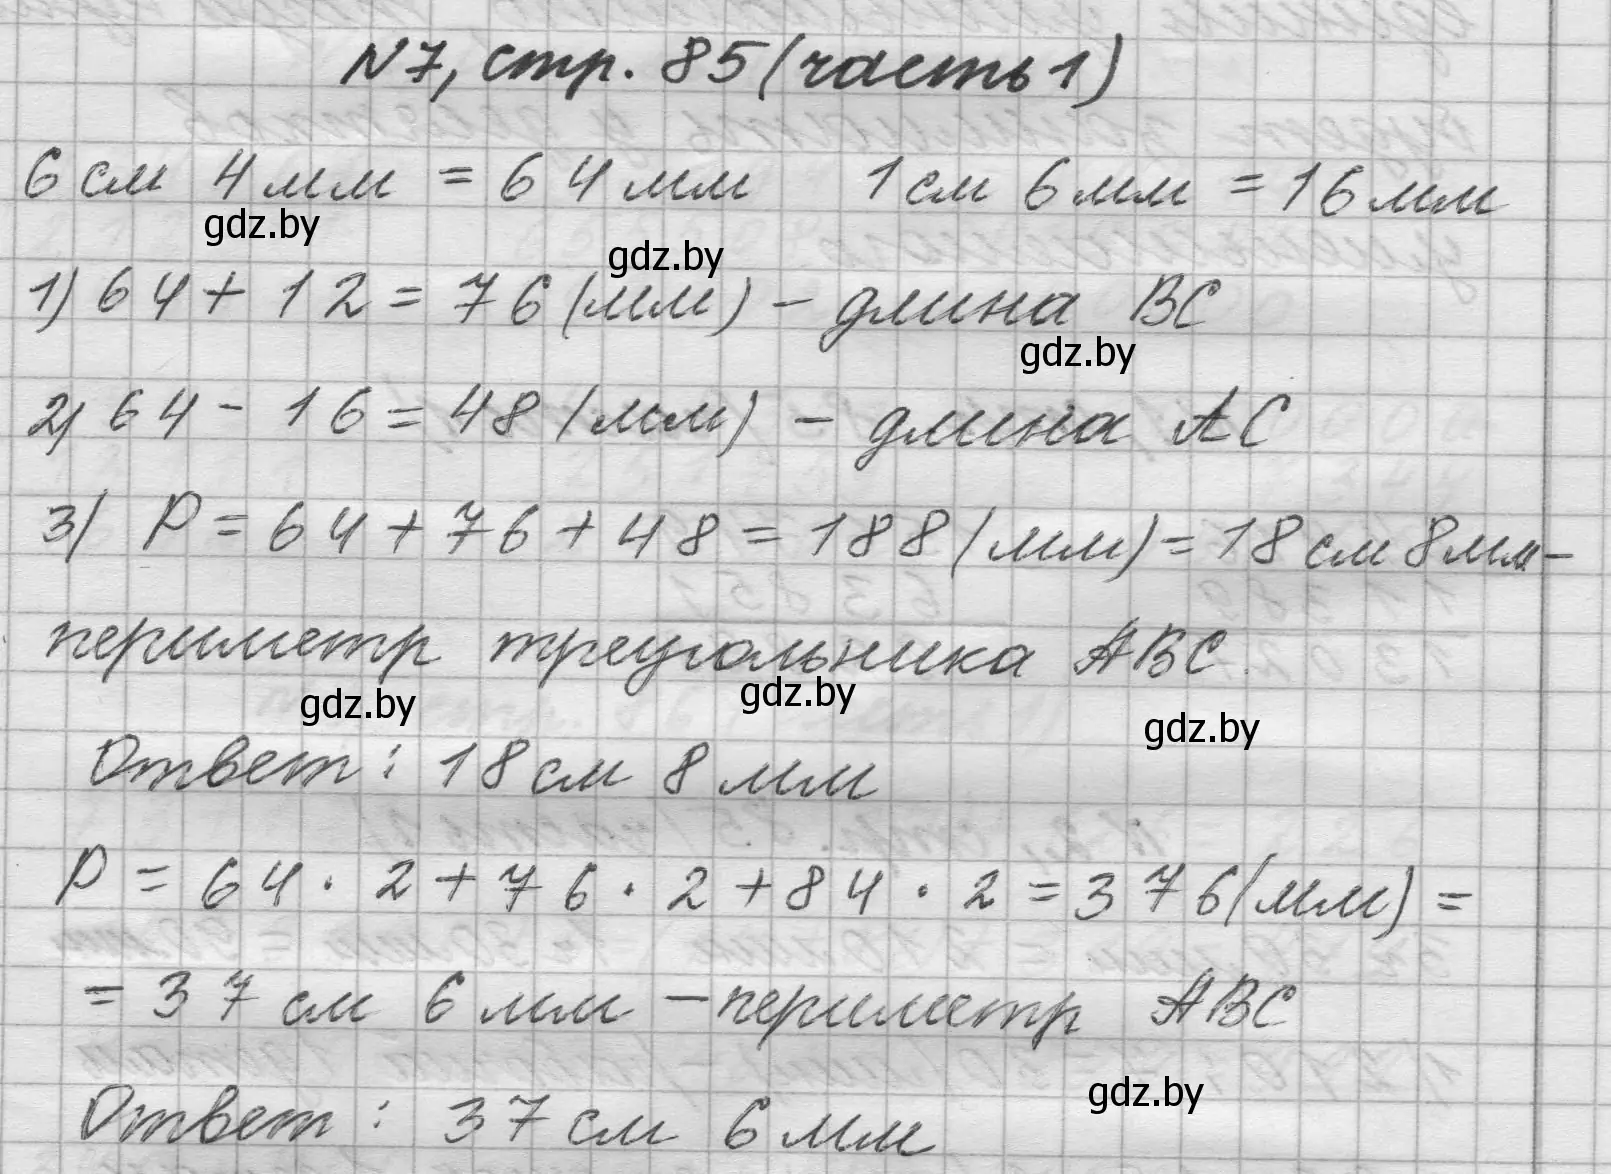 N7, стр. 85 (часть 1)
6 см 4 мм = 64 мм 1 см 6 мм = 16 мм
gdz.by
gdz.by
1) 64 + 12 = 76 (мм) - длина BC
gdz.by
2) 64 - 16 = 48 (мм) - длина AC
3) P = 64 + 76 + 48 = 188 (мм) = 18 см 8 мм -
периметр треугольника ABC.
gdz.by gdz.by gdz.by
Ответ: 18 см 8 мм
P = 64 · 2 + 76 · 2 + 84 · 2 = 376 (мм) =
= 37 см 6 мм - периметр ABC
gdz.by
Ответ: 37 см 6 мм